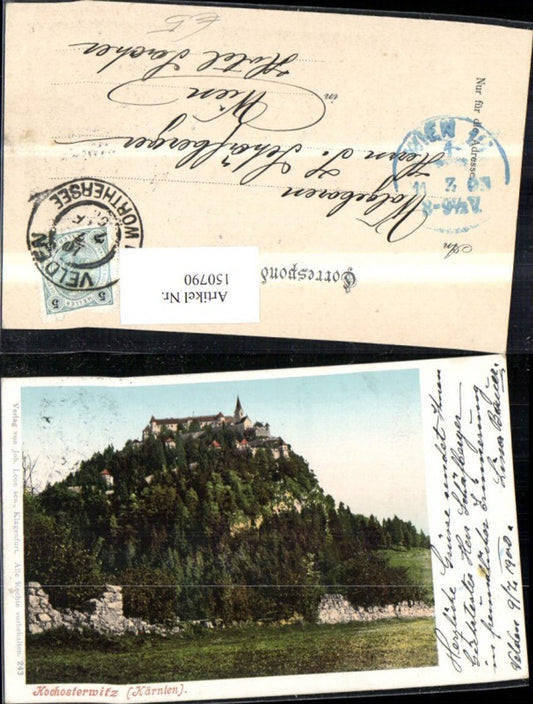 Correspond
An
Nur für die Adresse
Wolgeboren
Herrn J. Schäfberger
in Wien
Hotel Sacher
VELDEN
WÖRTHERSEE
5 5
WIEN
Artikel Nr.
150790
Herzliche Grüsse sendet Ihnen
Herr Schäfberger
in
Velden 9/7 1900.
Verlag von Joh. Leon sen., Klagenfurt. Alle Rechte vorbehalten. 243
Hochosterwitz (Kärnten).